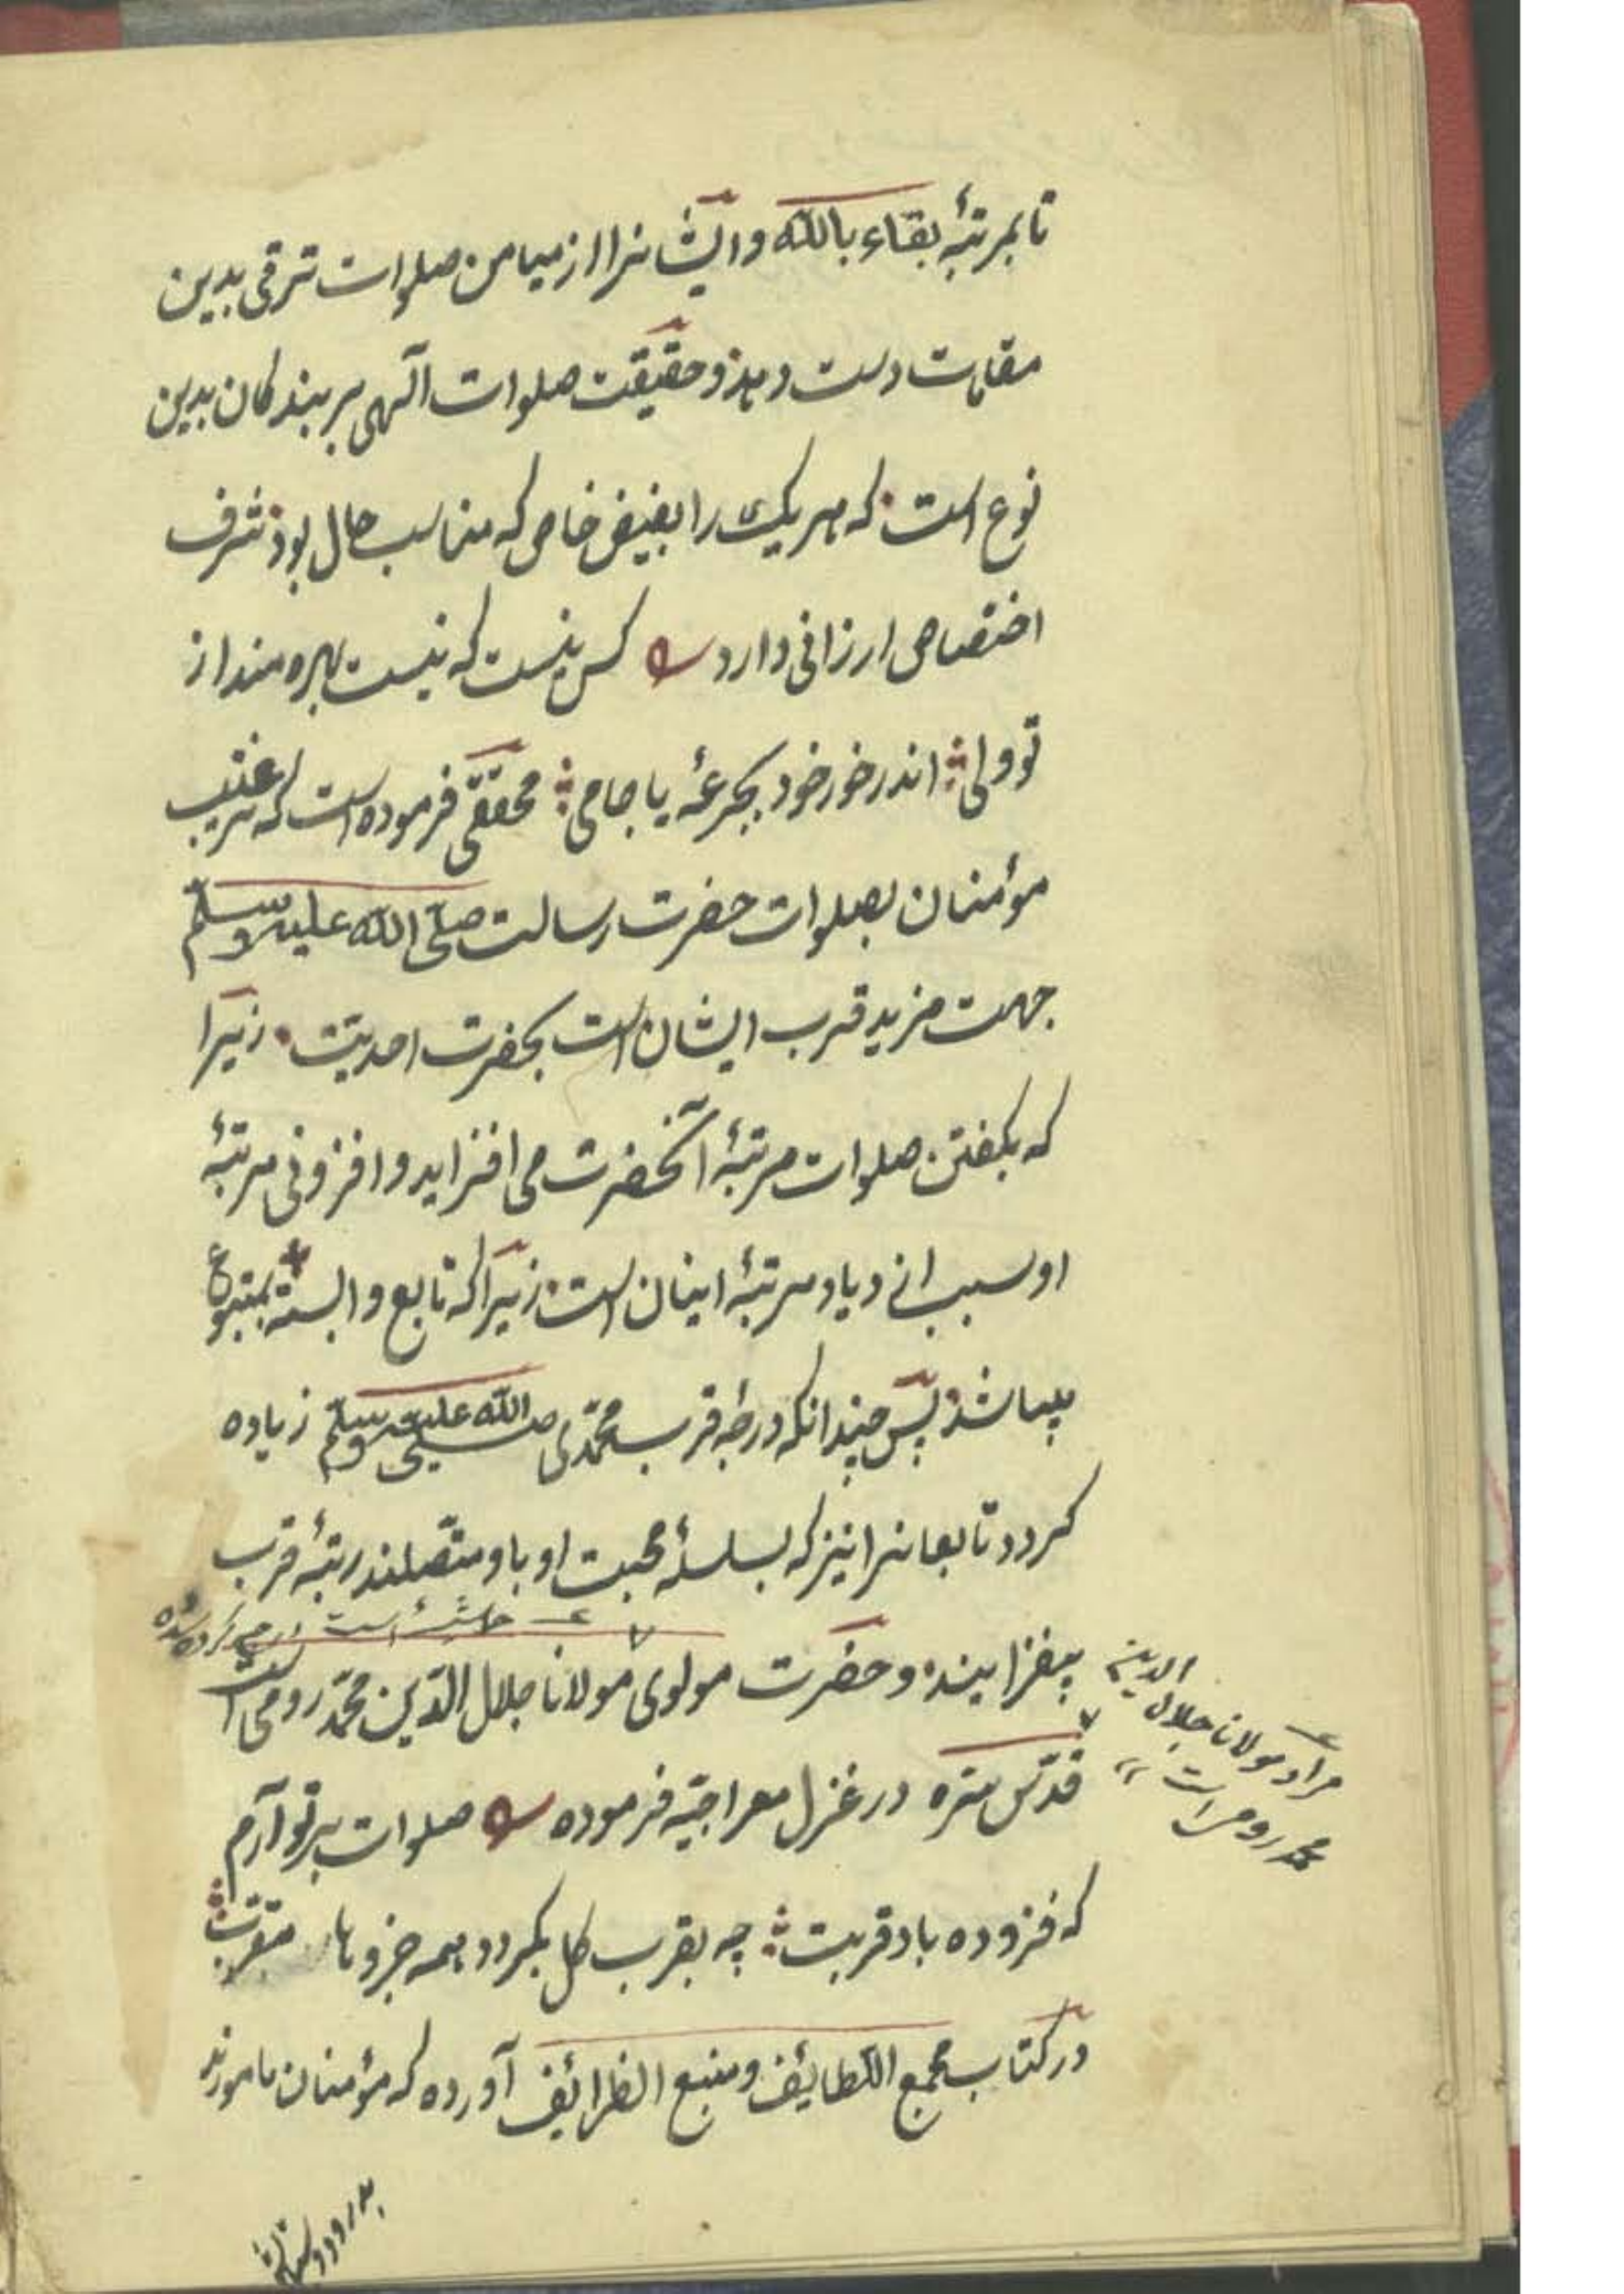 تا بمرتبۀ بقاء بالله و ایشانرا از میامن صلوات ترقی بدین
مقامات دست دهد و حقیقت صلوات آلهی بر بندکان بدین
نوع است که هر یک را بفیض خاص که مناسب حال بود شرف
اختصاص ارزانی دارد کس نیست که نیست بهره مند از
تو ولی اندر خور خود بجرعۀ یا جامی محققی فرموده است که ترغیب
مؤمنان بصلوات حضرت رسالت صلی الله علیه وسلم
جهت مزید قرب ایشان است بحضرت احدیت زیرا
که بکفتن صلوات مرتبۀ آنحضرت می افزاید و افزونی مرتبۀ
او سبب ازدیاد مرتبۀ اینان است زیرا که تابع وابسته بمتبوع
میباشد پس چندانکه درجۀ قرب محمّدی صلی الله علیه وسلم زیاده
کردد تابعانرا نیز که بسلسلۀ محبت او باو متصلند رتبۀ قرب
حاشیۀ است
بیفزاید و حضرت مولوی مولانا جلال الدّین محمّد رومی است
مراد مولانا جلال الدین
محمد رومی است
قدّس سرّه در غزل معراجیّه فرموده صلوات بر تو آرم
که فزوده باد قربت چه بقرب کل بکردد همه جزوها مقرّب
در کتاب مجمع اللّطائف و منبع الظرائف آورده که مؤمنان مامورند